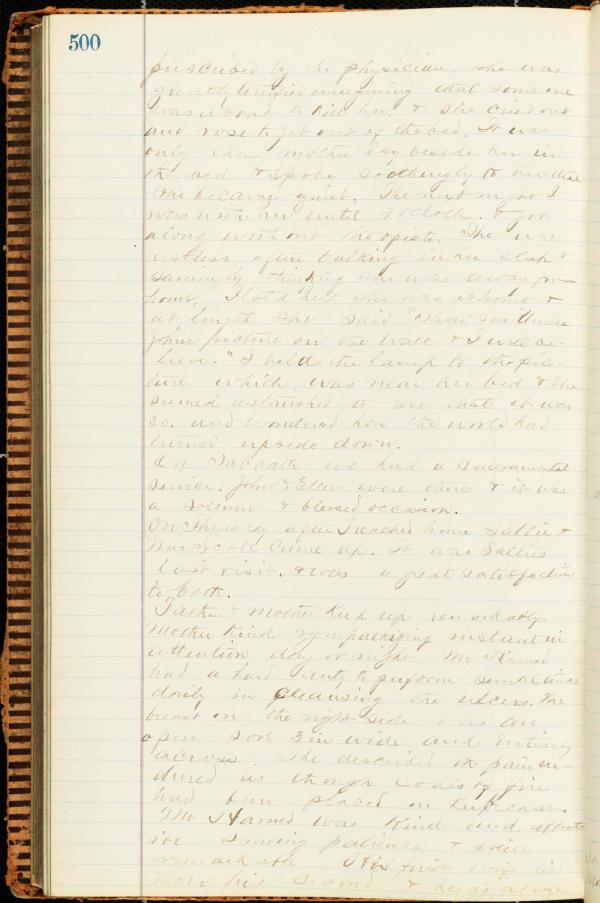 500
prescribed by the physician. She was
greatly terrified imagining that some one
was about to kill her. & she cried out
and rose to get out of the bed. It was
only when mother lay beside her in
the bed & spoke soothingly to her that
she became quiet. The next night I
was with her until 3 oclock. & got
along without the opiate. She was
restless, after talking in her sleep &
seemingly thinking she was away from
home, I told her she was at home &
at length she said "Show me Uncle
Johns picture on the wall & I will be-
lieve." I held the lamp to the pic-
ture which was near her bed & she
seemed astonished to see that it was
so. and wondered how the world had
turned upside down.
On Sabbath we had a sacramental
service. John & Ellen were there & it was
a solemn & blessed occasion.
On Thursday after I reached home Sallie &
Mrs Scott came up. It was Sallie's
last visit. & was a great satisfaction
to both.
Father & Mother keep up remarkably.
Mother kind sympathizing instant in
attention day or night. Mr Harned
had a hard duty to perform several times
daily in cleansing the ulcers. The
breast on the right side was an
open sore 3 in wide and entirely
across. She described the pain en-
dured as though coals of fire
had been placed on her breast.
Mr Harned was kind and attent-
ive showing patience & skill
remarkable. His first wife died
now his second & he is alone